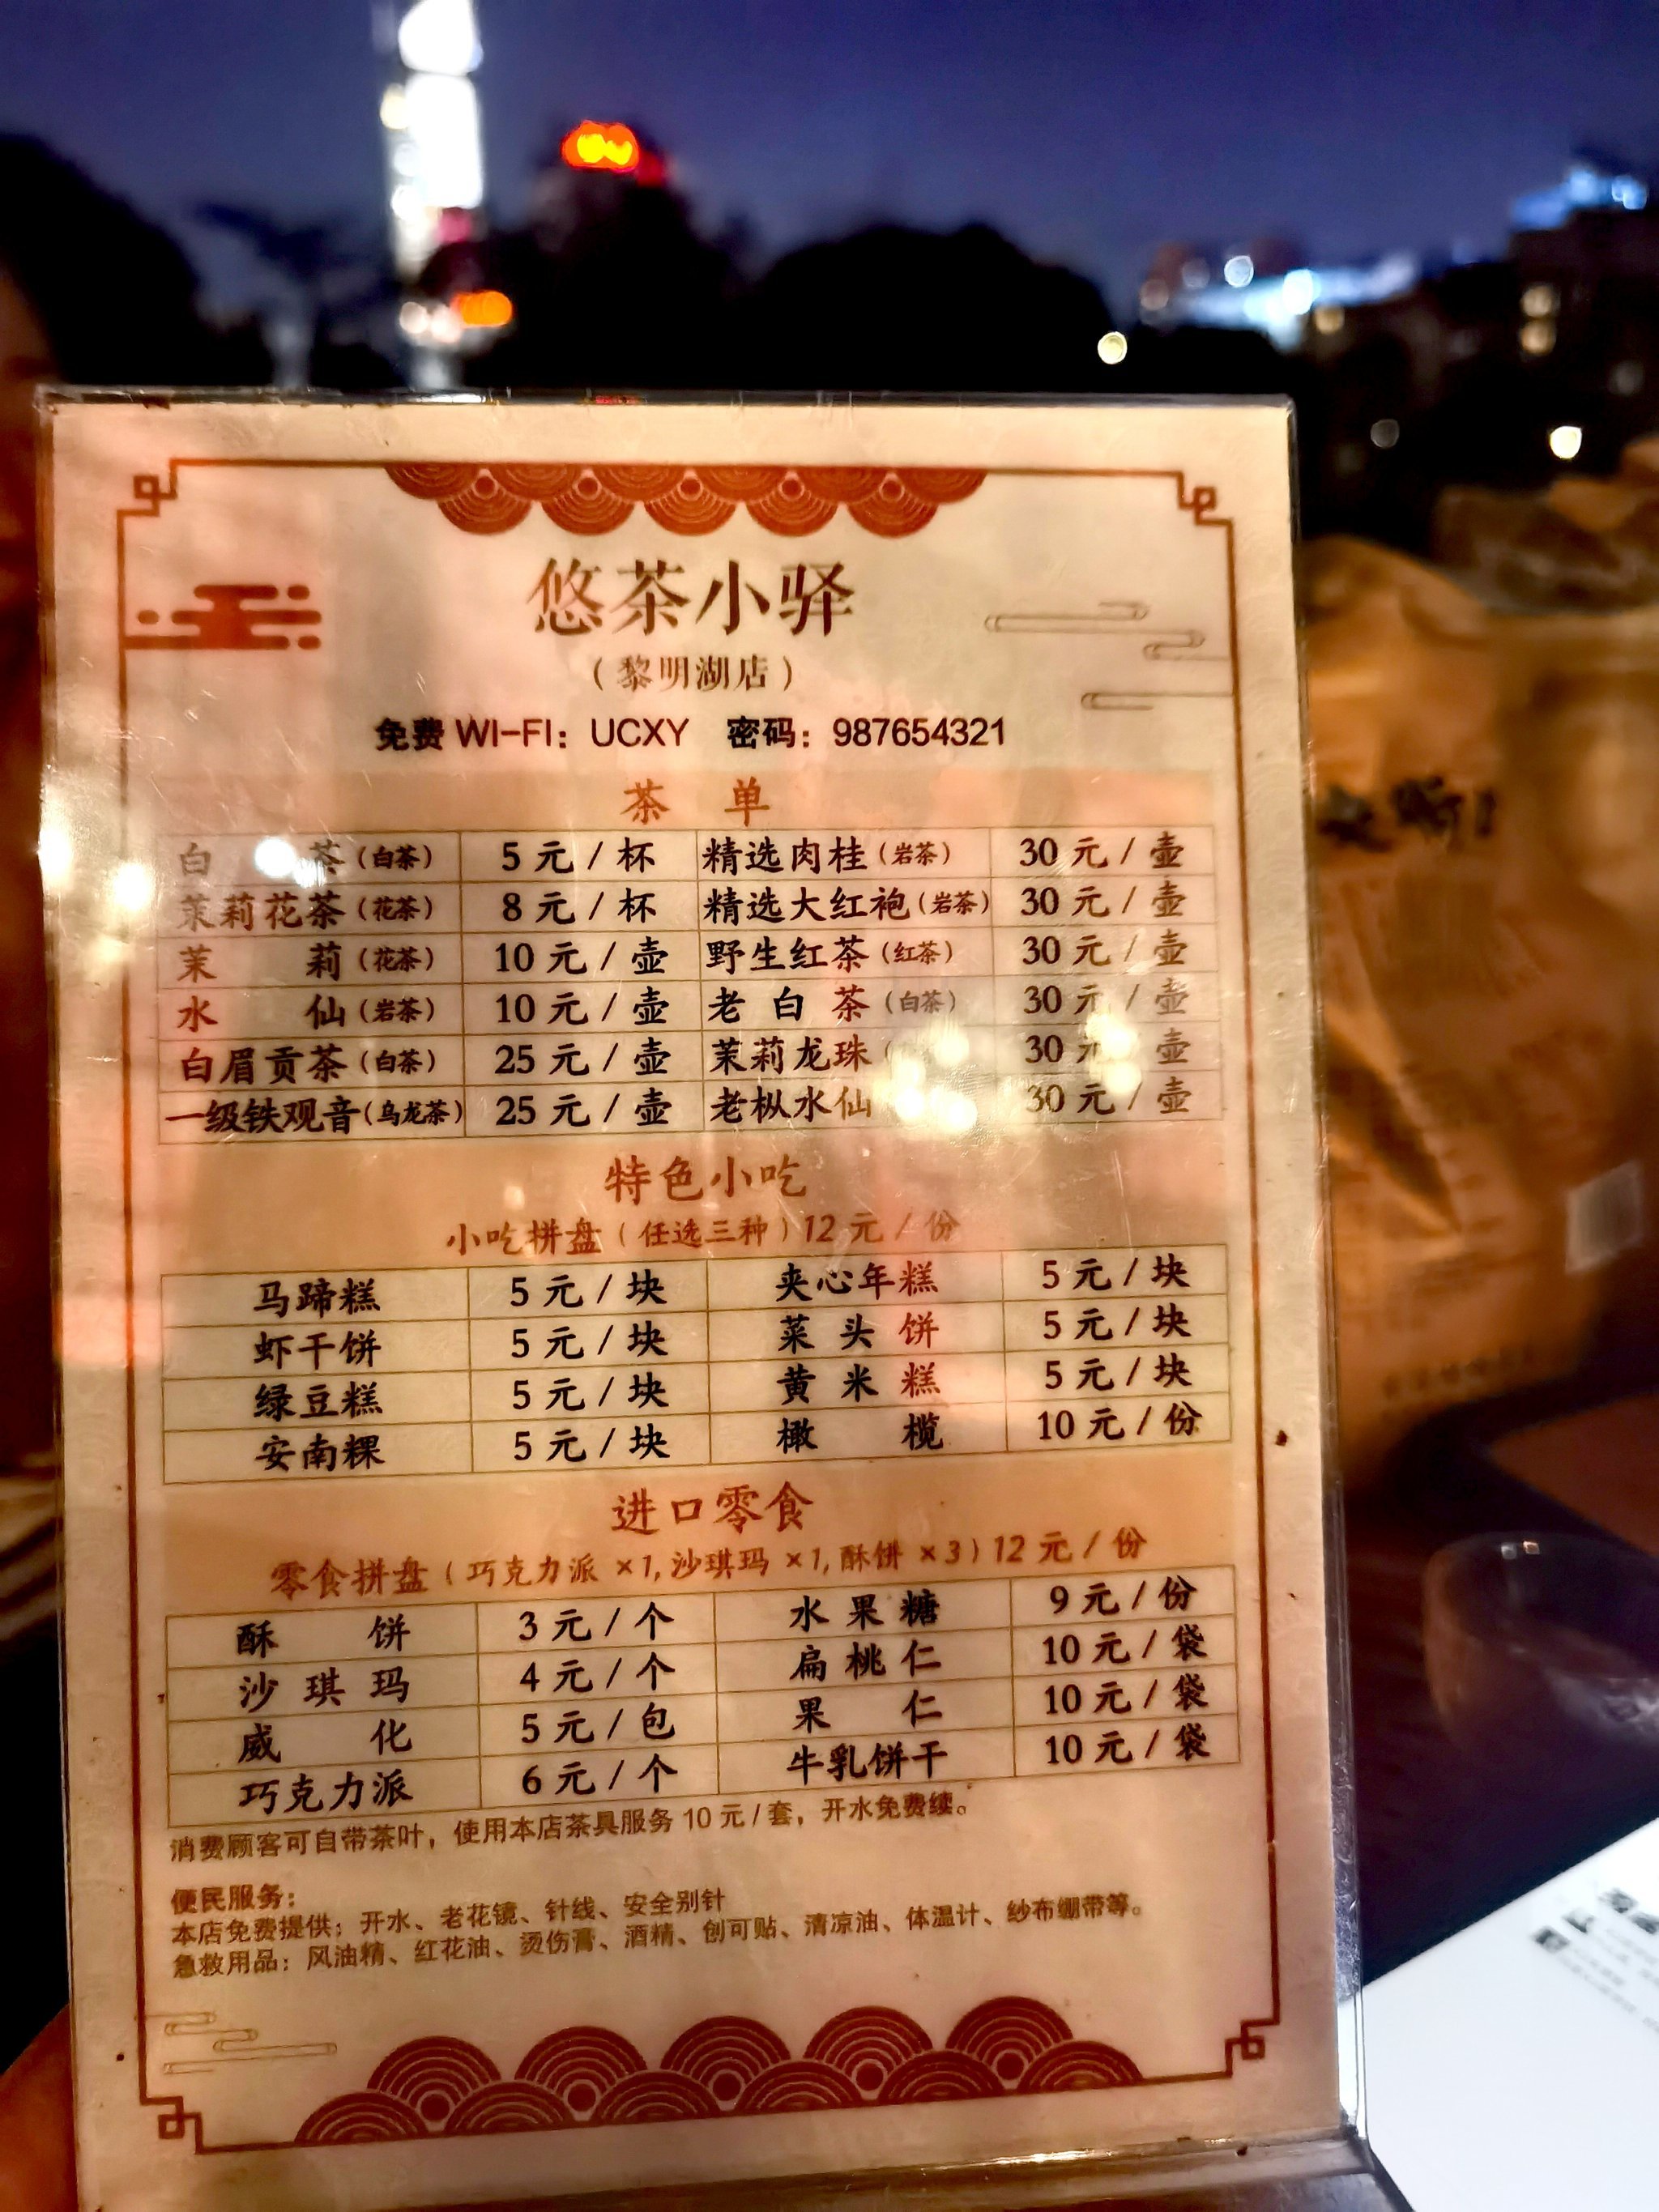 悠茶小驿
（黎明湖店）
免费 WI-FI：UCXY 密码：987654321
茶 单
白 茶（白茶） 5 元 / 杯 精选肉桂（岩茶） 30 元 / 壶
茉莉花茶（花茶） 8 元 / 杯 精选大红袍（岩茶） 30 元 / 壶
茉 莉（花茶） 10 元 / 壶 野生红茶（红茶） 30 元 / 壶
水 仙（岩茶） 10 元 / 壶 老 白 茶（白茶） 30 元 / 壶
白眉贡茶（白茶） 25 元 / 壶 茉莉龙珠 30 元 / 壶
一级铁观音（乌龙茶） 25 元 / 壶 老枞水仙 30 元 / 壶
特色小吃
小吃拼盘（任选三种）12 元 / 份
马蹄糕 5 元 / 块 夹心年糕 5 元 / 块
虾干饼 5 元 / 块 菜 头 饼 5 元 / 块
绿豆糕 5 元 / 块 黄 米 糕 5 元 / 块
安南粿 5 元 / 块 橄 榄 10 元 / 份
进口零食
零食拼盘（巧克力派 ×1, 沙琪玛 ×1, 酥饼 ×3）12 元 / 份
酥 饼 3 元 / 个 水 果 糖 9 元 / 份
沙 琪 玛 4 元 / 个 扁 桃 仁 10 元 / 袋
威 化 5 元 / 包 果 仁 10 元 / 袋
巧克力派 6 元 / 个 牛乳饼干 10 元 / 袋
消费顾客可自带茶叶，使用本店茶具服务 10 元 / 套，开水免费续。
便民服务：
本店免费提供：开水、老花镜、针线、安全别针
急救用品：风油精、红花油、烫伤膏、酒精、创可贴、清凉油、体温计、纱布绷带等。